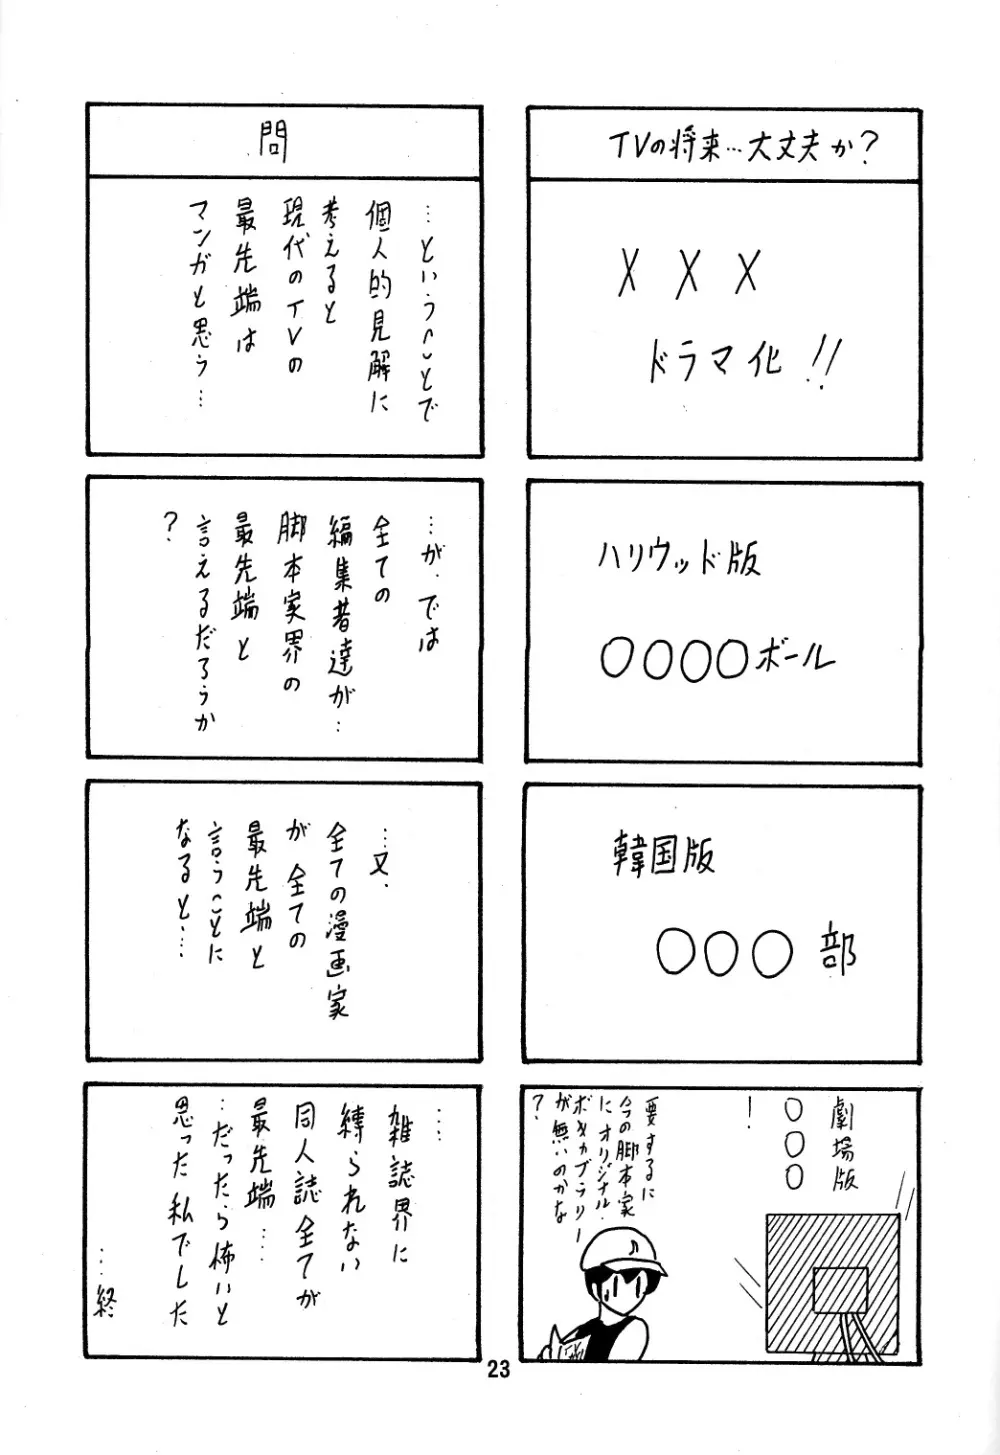 TVの将来…大丈夫か?
XXX
ドラマ化!!
ハリウッド版
〇〇〇〇ボール
韓国版
〇〇〇部
劇場版
〇〇〇
!
要するに
今の脚本家
にオリジナル・
ボキャブラリー
が無いのかな
?
問
…ということで
個人的見解に
考えると
現代のTVの
最先端は
マンガと思う…
…が、では
全ての
編集者達が…
脚本家界の
最先端と
言えるだろうか
?
…又、
全ての漫画家
が全ての
最先端と
言うことに
なると…
…
雑誌界に
縛られない
同人誌全てが
最先端…
…だったら怖いと
思った私でした
…終
23